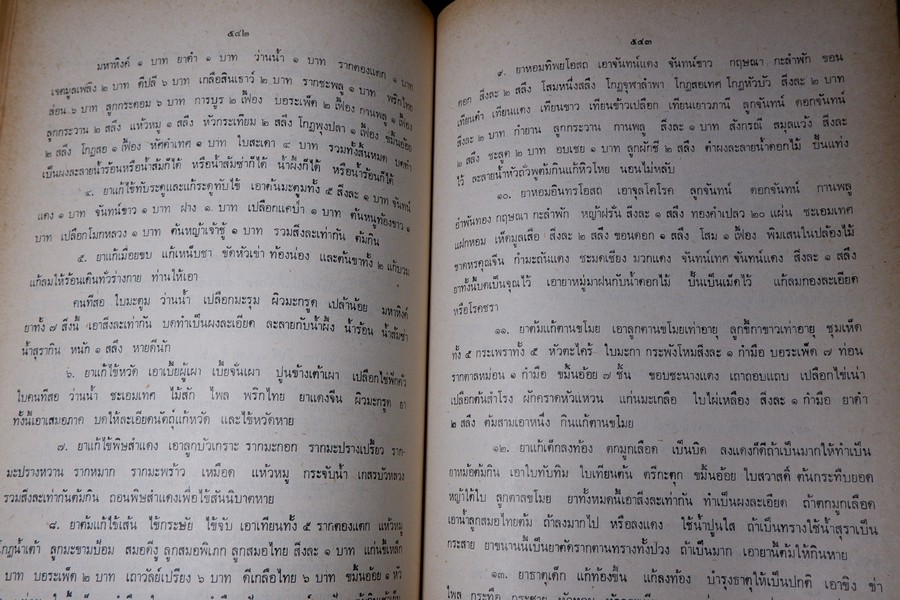 ๕๔๒
มหาหิงค์ ๑ บาท ยาดำ ๑ บาท ว่านน้ำ ๑ บาท รากตองแตก ๑ บาท
เจตมูลเพลิง ๒ บาท ดีปลี ๖ บาท เกลือสินเธาว์ ๒ บาท รากชะพลู ๑ บาท พริกไทย
ล่อน ๖ บาท ลูกกระดอม ๖ บาท การบูร ๒ เฟื้อง บอระเพ็ด ๒ เฟื้อง กานพลู ๑ เฟื้อง
ลูกกระวาน ๒ สลึง แห้วหมู ๑ สลึง หัวกระเทียม ๒ สลึง โกฏพุงปลา ๑ เฟื้อง ขมิ้นอ้อย
๒ สลึง โกฏสอ ๑ เฟื้อง หัศดำเทศ ๑ บาท ใบสะเดา ๔ บาท รวมทั้งสิ้นหมด บดทำ
เป็นผงละลายน้ำร้อนหรือน้ำส้มก็ได้ หรือน้ำส้มซ่าก็ได้ น้ำผึ้งก็ได้ หรือน้ำร้อนก็ได้
๔. ยาแก้ไข้ทับระดูและแก้ระดูทับไข้ เอาต้นมะตูมทั้ง ๕ สิ่งละ ๑ บาท จันทน์
แดง ๑ บาท จันทน์ขาว ๑ บาท ฝาง ๑ บาท เปลือกแคป่า ๑ บาท ต้นหนูท้องขาว ๑
บาท เปลือกโมกหลวง ๑ บาท ต้นหญ้าเจ้าชู้ ๑ บาท รวมสิ่งละเท่ากัน ต้มกิน
๕. ยาแก้เมื่อยขบ แก้เหน็บชา ขัดหัวเข่า ท้องน่อง และต้นขาทั้ง ๒ แก้บวม
แก้ลมให้ร้อนเดินทั่วร่างกาย ท่านให้เอา
คนทีสอ ใบมะตูม ว่านน้ำ เปลือกมะรุม ผิวมะกรูด เปล้าน้อย มหาหิงค์
ยาทั้ง ๗ สิ่งนี้ เอาสิ่งละเท่ากัน บดทำเป็นผงละเอียด ละลายกับน้ำผึ้ง น้ำร้อน น้ำส้มซ่า
น้ำสุรากิน หนัก ๑ สลึง หายดีนัก
๖. ยาแก้ไข้หวัด เอาเบี้ยผู้เผา เบี้ยจั่นเผา ปูนข้างเต้าเผา เปลือกไข่ฟักตัว
ใบคนทีสอ ว่านน้ำ ชะเอมเทศ ไม้สัก ไพล พริกไทย ยาแดงจีน ผิวมะกรูด ยา
ทั้งนี้เอาเสมอภาค บดให้ละเอียดนัตถุ์แก้หวัด และไข้หวัดหาย
๗. ยาแก้ไข้พิษสำแดง เอาลูกบัวเกราะ รากมะกอก รากมะปรางเปรี้ยว ราก
มะปรางหวาน รากหมาก รากมะพร้าว เหมือด แห้วหมู กระจับน้ำ เกสรบัวหลวง
รวมสิ่งละเท่ากันต้มกิน ถอนพิษสำแดงเพื่อไข้สันนิบาตหาย
๘. ยาต้มแก้ไข้เส้น ไข้กระษัย ไข้จับ เอาเทียนทั้ง ๕ รากตองแตก แห้วหมู
โกฏน้ำเต้า ลูกมะขามป้อม สมอดีงู ลูกสมอพิเภก ลูกสมอไทย สิ่งละ ๑ บาท แก่นขี้เหล็ก
บาท บอระเพ็ด ๒ บาท เถาวัลย์เปรียง ๖ บาท ดีเกลือไทย ๖ บาท ขมิ้นอ้อย ๑ หัว
๕๔๓
๙. ยาหอมทิพยโอสถ เอาจันทน์แดง จันทน์ขาว กฤษณา กะลำพัก ขอน
ดอก สิ่งละ ๒ สลึง โสมหนึ่งสลึง โกฏจุฬาลำพา โกฏสอเทศ โกฏหัวบัว สิ่งละ ๒ บาท
เทียนดำ เทียนแดง เทียนขาว เทียนข้าวเปลือก เทียนเยาวภานี ลูกจันทน์ ดอกจันทน์
สิ่งละ ๒ บาท กำยาน ลูกกระวาน กานพลู สิ่งละ ๑ บาท สังกรณี สมุลแว้ง สิ่งละ
๒ สลึง ชะลูด ๒ บาท อบเชย ๑ บาท ลูกผักชี ๒ สลึง ตำผงละลายน้ำดอกไม้ ปั้นแท่ง
ไว้ ละลายน้ำหัวถั่วพูต้มกินแก้หิวโหย นอนไม่หลับ
๑๐. ยาหอมอินทรโอสถ เอาจุลโคโรค ลูกจันทน์ ดอกจันทน์ กานพลู
อำพันทอง กฤษณา กะลำพัก หญ้าฝรั่น สิ่งละ ๑ สลึง ทองคำเปลว ๒๐ แผ่น ชะเอมเทศ
แฝกหอม เห็ดมูลเสือ สิ่งละ ๒ สลึง ขอนดอก ๑ สลึง โสม ๑ เฟื้อง พิมเสนในปล้องไม้
ชาดหรคุณจีน กำมะถันแดง ชะมดเชียง มวกแดง จันทน์เทศ จันทน์แดง สิ่งละ ๑ สลึง
ยาทั้งนี้บดเป็นจุณไว้ เอายาหมู่มาฝนกับน้ำดอกไม้ ปั้นเป็นเม็ดไว้ แก้ลมกองละเอียด
หรือโรคชรา
๑๑. ยาต้มแก้ตานขโมย เอาลูกตานขโมยเท่าอายุ ลูกขี้กาขาวเท่าอายุ ชุมเห็ด
ทั้ง ๕ กระเพราทั้ง ๕ หัวตะไคร้ ใบมะกา กระพังโหมสิ่งละ ๑ กำมือ บอระเพ็ด ๗ ท่อน
รากตาลหม่อน ๑ กำมือ ขมิ้นอ้อย ๗ ชิ้น ขอบชะนางแดง เถาถอบแถบ เปลือกไข่เน่า
เปลือกต้นสำโรง ผักคราดหัวแหวน แก่นมะเกลือ ใบไผ่เหลือง สิ่งละ ๑ กำมือ ยาดำ
๒ สลึง ต้มสามเอาหนึ่ง กินแก้ตานขโมย
๑๒. ยาแก้เด็กลงท้อง ตกมูกเลือด เป็นบิด ลงแดงก็ดีถ้าเป็นมากให้ทำเป็น
ยาหม้อต้มกิน เอาใบทับทิม ใบเทียนต้น ตรีกะตุก ขมิ้นอ้อย ใบสวาสดิ์ ต้นกระทืบยอด
หญ้าใต้ใบ ลูกตาลขโมย ยาทั้งหมดนี้เอาสิ่งละเท่ากัน ทำเป็นผงละเอียด ถ้าตกมูกเลือด
เอาน้ำลูกสมอไทยต้ม ถ้าลงมากไป หรือลงแดง ใช้น้ำปูนใส ถ้าเป็นทรางใช้น้ำสุราเป็น
กระสาย ยาขนานนี้เป็นยาตัดรากตานทรางทั้งปวง ถ้าเป็นมาก เอายานี้ต้มให้กินหาย
๑๓. ยาธาตุเด็ก แก้ท้องขึ้น แก้ลงท้อง บำรุงธาตุให้เป็นปกติ เอาขิง ข่า